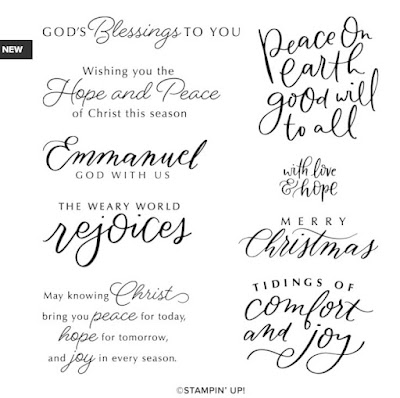 NEW
GOD'S Blessings TO YOU
Wishing you the
Hope and Peace
of Christ this season
Emmanuel
GOD WITH US
THE WEARY WORLD
rejoices
May knowing Christ
bring you peace for today,
hope for tomorrow,
and joy in every season.
Peace On
earth
good will
to all
with love
& hope
MERRY
Christmas
TIDINGS OF
comfort
and joy
©STAMPIN' UP!